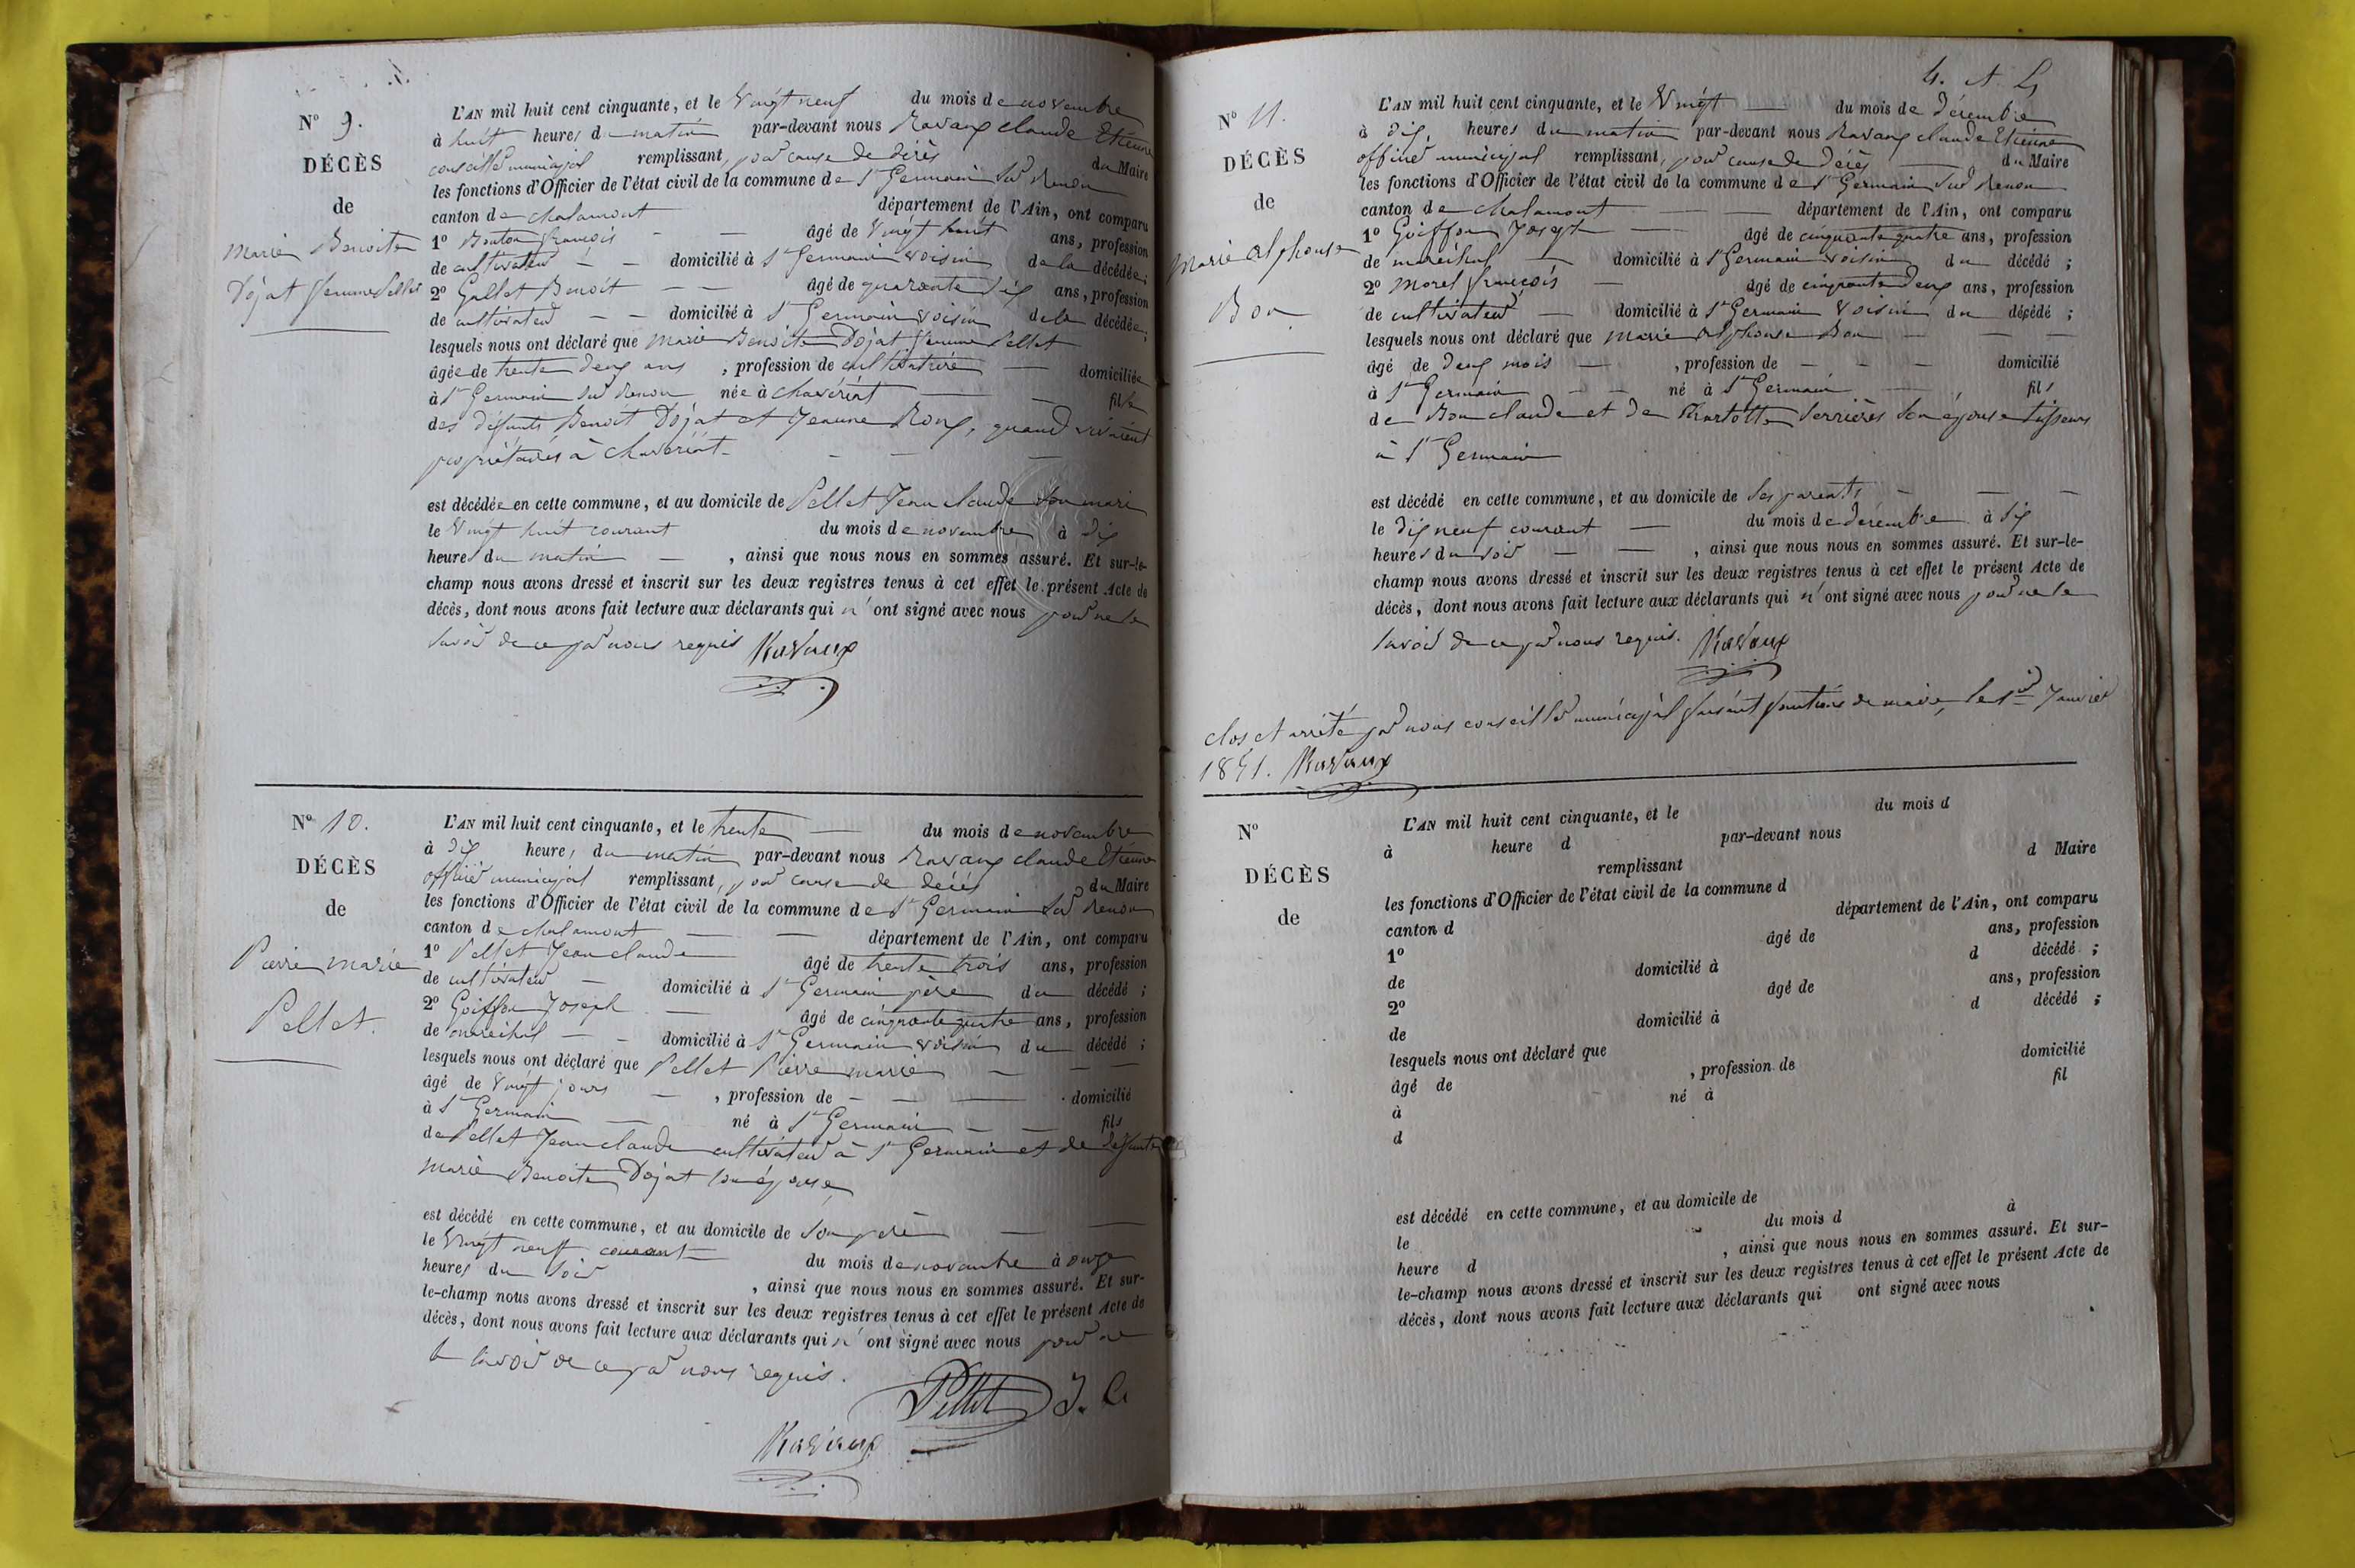 N° 9.
DÉCÈS
de
Marie Benoite
Dójat femme Pellet
L'AN mil huit cent cinquante, et le Vingt neuf du mois de novembre
à huit heures du matin par-devant nous Ravaux claude Etienne
conseiller municipal remplissant, pour cause de décès du Maire
les fonctions d'Officier de l'état civil de la commune de St Germain sur Renon
canton de chalamont département de l'Ain, ont comparu
1° Bouton françois âgé de Vingt huit ans, profession
de cultivateur domicilié à St Germain voisin de la décédée;
2° Gallet Benoit âgé de quarante dix ans, profession
de cultivateur domicilié à St Germain voisin de la décédée;
lesquels nous ont déclaré que Marie Benoite Dójat femme Pellet
âgée de trente deux ans, profession de cultivatrice domiciliée
à St Germain sur Renon née à chavériat fille
des défunts Benoit Dójat et Jeanne Roux, quand vivaient
propriétaires à Chavériat
est décédée en cette commune, et au domicile de Pellet Jean claude son mari
le Vingt huit courant du mois de novembre à dix
heures du matin, ainsi que nous nous en sommes assuré. Et sur-le-
champ nous avons dressé et inscrit sur les deux registres tenus à cet effet le présent Acte de
décès, dont nous avons fait lecture aux déclarants qui n'ont signé avec nous pour ne le
savoir de ce par nous requis Ravaux
N° 10.
DÉCÈS
de
Pierre marie
Pellet.
L'AN mil huit cent cinquante, et le trente du mois de novembre
à dix heures du matin par-devant nous Ravaux claude Etienne
officier municipal remplissant, pour cause de décès du Maire
les fonctions d'Officier de l'état civil de la commune de St Germain sur Renon
canton de chalamont département de l'Ain, ont comparu
1° Pellet Jean claude âgé de trente trois ans, profession
de cultivateur domicilié à St Germain père du décédé;
2° Goiffon Joseph âgé de cinquante quatre ans, profession
de maréchal domicilié à St Germain voisin du décédé;
lesquels nous ont déclaré que Pellet Pierre marie
âgé de Vingt jours, profession de domicilié
à St Germain né à St Germain fils
de Pellet Jean claude cultivateur à St Germain et de défunte
Marie Benoite Dójat son épouse
est décédé en cette commune, et au domicile de Son père
le Vingt neuf courant du mois de novembre à onze
heures du soir, ainsi que nous nous en sommes assuré. Et sur-
le-champ nous avons dressé et inscrit sur les deux registres tenus à cet effet le présent Acte de
décès, dont nous avons fait lecture aux déclarants qui n'ont signé avec nous pour ne
le savoir de ce par nous requis.
Pellet J. C.
Ravaux
N° 11.
DÉCÈS
de
Marie alphonse
Bon
L'AN mil huit cent cinquante, et le Vingt du mois de décembre
à dix heures du matin par-devant nous Ravaux claude Etienne
officier municipal remplissant, pour cause de décès du Maire
les fonctions d'Officier de l'état civil de la commune de St Germain sur Renon
canton de chalamont département de l'Ain, ont comparu
1° Goiffon Joseph âgé de cinquante quatre ans, profession
de maréchal domicilié à St Germain voisin du décédé;
2° Morel françois âgé de cinquante deux ans, profession
de cultivateur domicilié à St Germain voisin du décédé;
lesquels nous ont déclaré que marie alphonse Bon
âgé de deux mois, profession de domicilié
à St Germain né à St Germain, fils
de Bon claude et de Serrières son épouse tisseurs
à St Germain
est décédé en cette commune, et au domicile de ses parents
le dix neuf courant du mois de décembre à dix
heures du soir, ainsi que nous nous en sommes assuré. Et sur-le-
champ nous avons dressé et inscrit sur les deux registres tenus à cet effet le présent Acte de
décès, dont nous avons fait lecture aux déclarants qui n'ont signé avec nous pour ne le
savoir de ce par nous requis. Ravaux
clos et arrêté par nous conseiller municipal faisant fonctions de maire, le 1er Janvier
1851. Ravaux
N°
DÉCÈS
de
L'AN mil huit cent cinquante, et le du mois d
à heure d par-devant nous
remplissant d Maire
les fonctions d'Officier de l'état civil de la commune d
canton d département de l'Ain, ont comparu
1° âgé de ans, profession
de domicilié à d décédé;
2° âgé de ans, profession
de domicilié à d décédé;
lesquels nous ont déclaré que
âgé de, profession de domicilié
à né à fil
d
est décédé en cette commune, et au domicile de
le du mois d à
heure d, ainsi que nous nous en sommes assuré. Et sur-
le-champ nous avons dressé et inscrit sur les deux registres tenus à cet effet le présent Acte de
décès, dont nous avons fait lecture aux déclarants qui ont signé avec nous